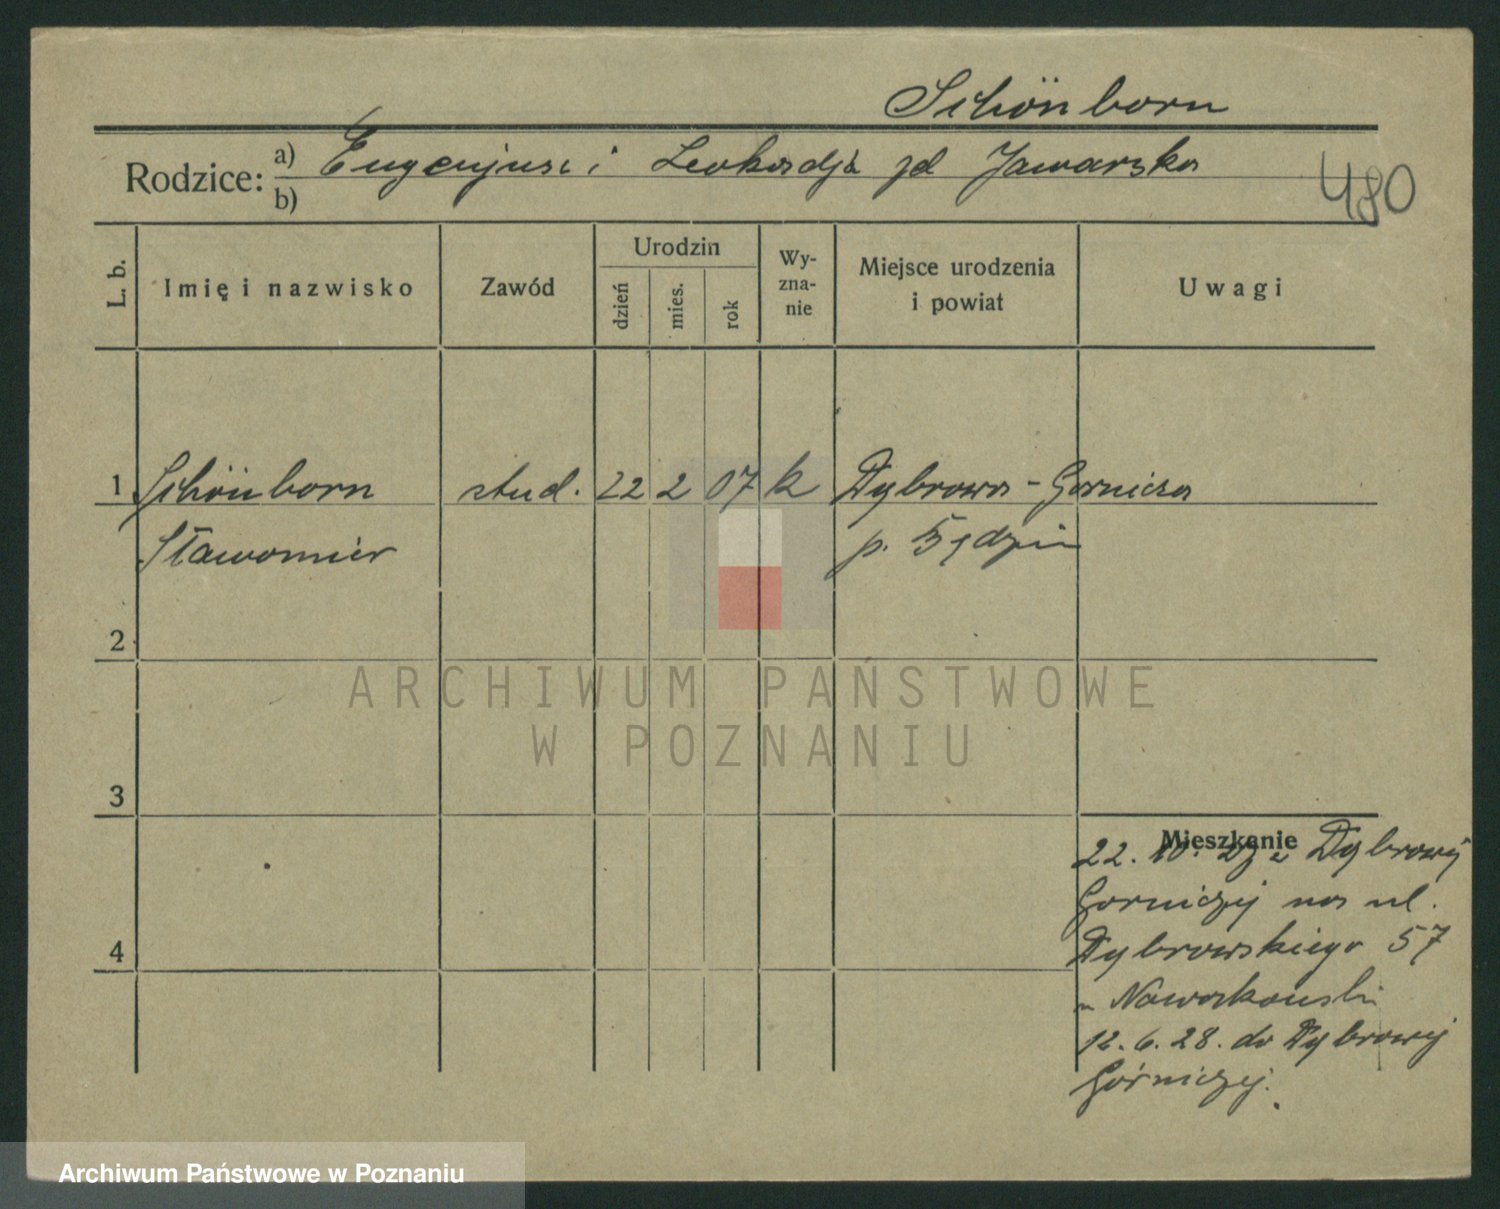 Schönborn
Rodzice: a) Eugenjusz i Leokadja zd Jaworska
b)
480
L. b.
Imię i nazwisko
Zawód
Urodzin
dzień
mies.
rok
Wy-
zna-
nie
Miejsce urodzenia
i powiat
Uwagi
1 Schönborn stud. 22 2 07 k Dąbrowa - Gornicza
Sławomir p. Będzin
2
3
4
Mieszkanie
22. 10. 27 z Dąbrowy
Gorniczej na ul.
Dąbrowskiego 57
12. 6. 28. do Dąbrowy
Górniczej.
ARCHIWUM PAŃSTWOWE
W POZNANIU
Archiwum Państwowe w Poznaniu